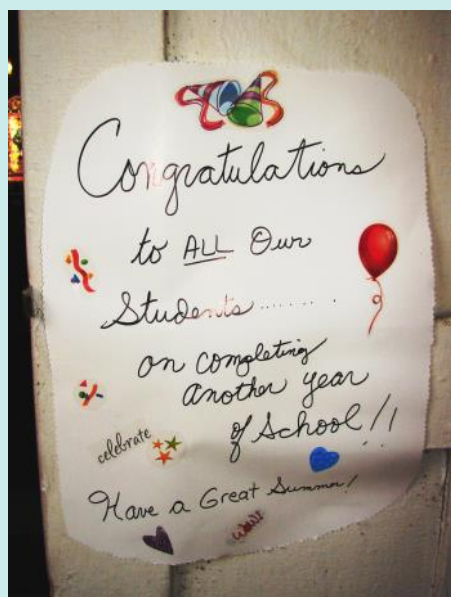 Congratulations
to ALL Our
Students.........
on completing
another year
of School!!
celebrate
Have a Great Summer!
wow!